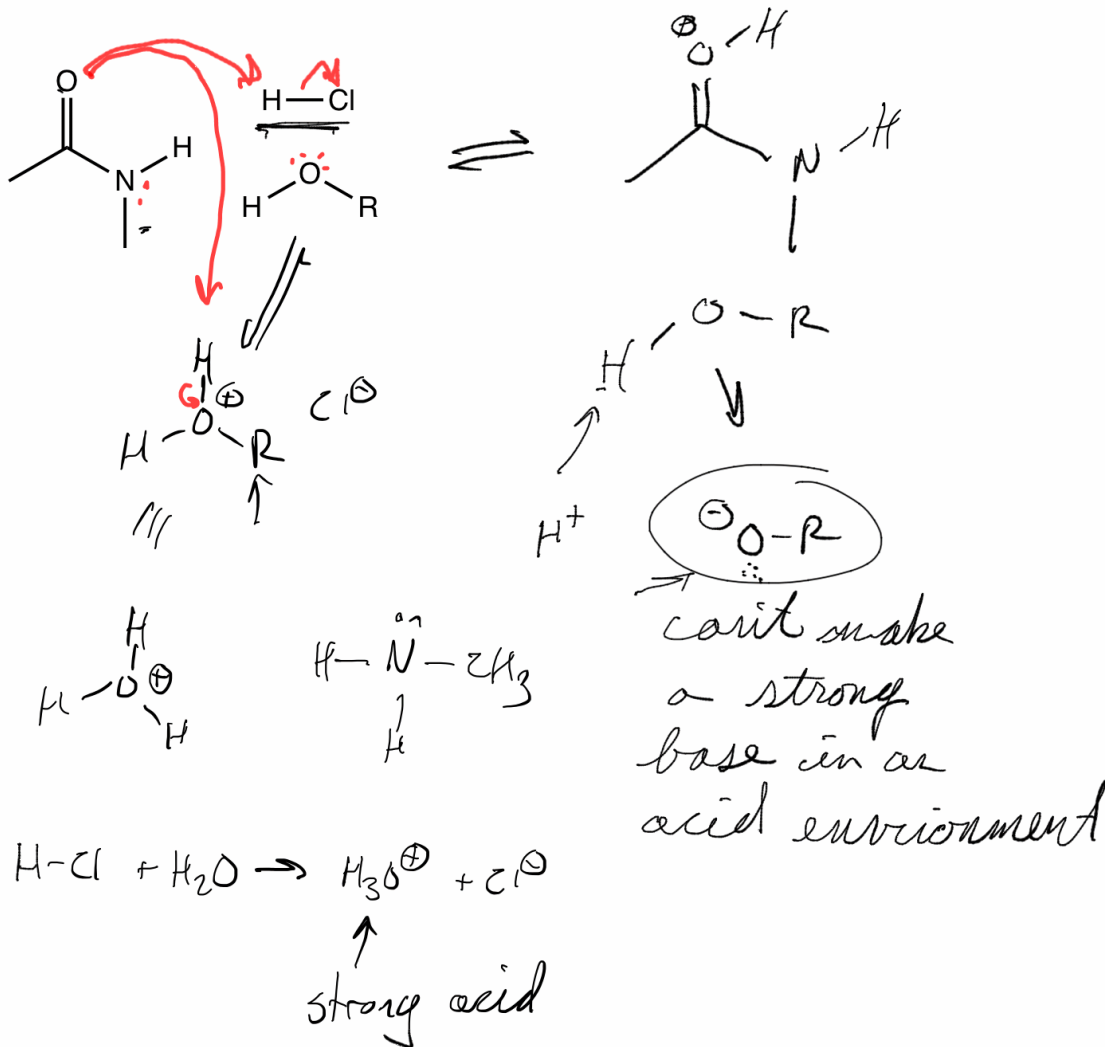 O
H
H—Cl
N
H
O
R
⊕
O-H
N
H
O-R
H
H
⊕
O
H
R
Cl⊖
H+
⊖
O-R
can't make
a strong
base in an
acid envrionment
H
O
⊕
H
H
H-N-CH3
H
H-Cl + H2O → H3O⊕ + Cl⊖
strong acid